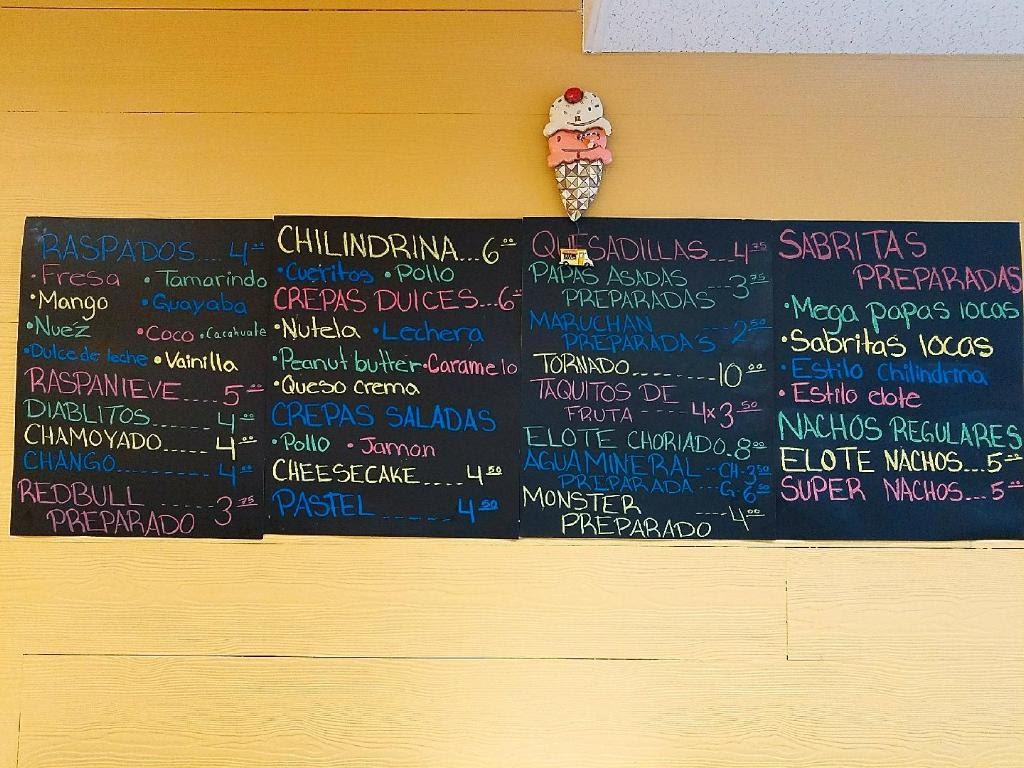 RASPADOS... 4.00
• Fresa • Tamarindo
• Mango • Guayaba
• Nuez • Coco • Cacahuate
• Dulce de leche • Vainilla
RASPANIEVE..... 5.00
DIABLITOS ...... 4.00
CHAMOYADO..... 4.00
CHANGO.......... 4.00
REDBULL ....... 3.75
PREPARADO
CHILINDRINA...6.00
• Cueritos • Pollo
CREPAS DULCES...6.00
• Nutela • Lechera
• Peanut butter • Caramelo
• Queso crema
CREPAS SALADAS
• Pollo • Jamon
CHEESECAKE.... 4.50
PASTEL ....... 4.50
QUESADILLAS...4.75
PAPAS ASADAS
PREPARADAS ...3.75
MARUCHAN
PREPARADA'S ....2.50
TORNADO........10.00
TAQUITOS DE
FRUTA ..... 4x3.50
ELOTE CHORIADO..8.00
AGUA MINERAL ..CH-3.50
PREPARADA ..G-6.50
MONSTER
PREPARADO ....4.00
SABRITAS
PREPARADAS
• Mega papas locas
• Sabritas locas
• Estilo chilindrina
• Estilo elote
NACHOS REGULARES
ELOTE NACHOS...5.00
SUPER NACHOS...5.00